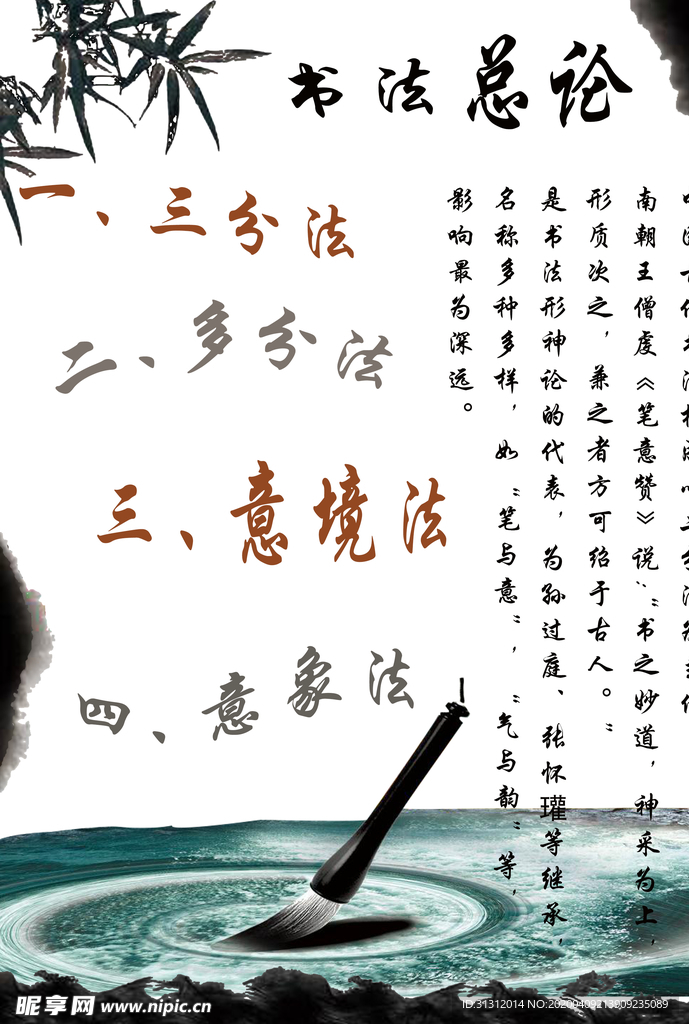 书法总论
一、三分法
二、多分法
三、意境法
四、意象法
南朝王僧虔《笔意赞》说：“书之妙道，神采为上，
形质次之，兼之者方可绍于古人。”
是书法形神论的代表，为孙过庭、张怀瓘等继承，
名称多种多样，如“笔与意”，“气与韵”等，
影响最为深远。
昵享网 www.nipic.cn
ID:31312014 NO:20200409213009235089